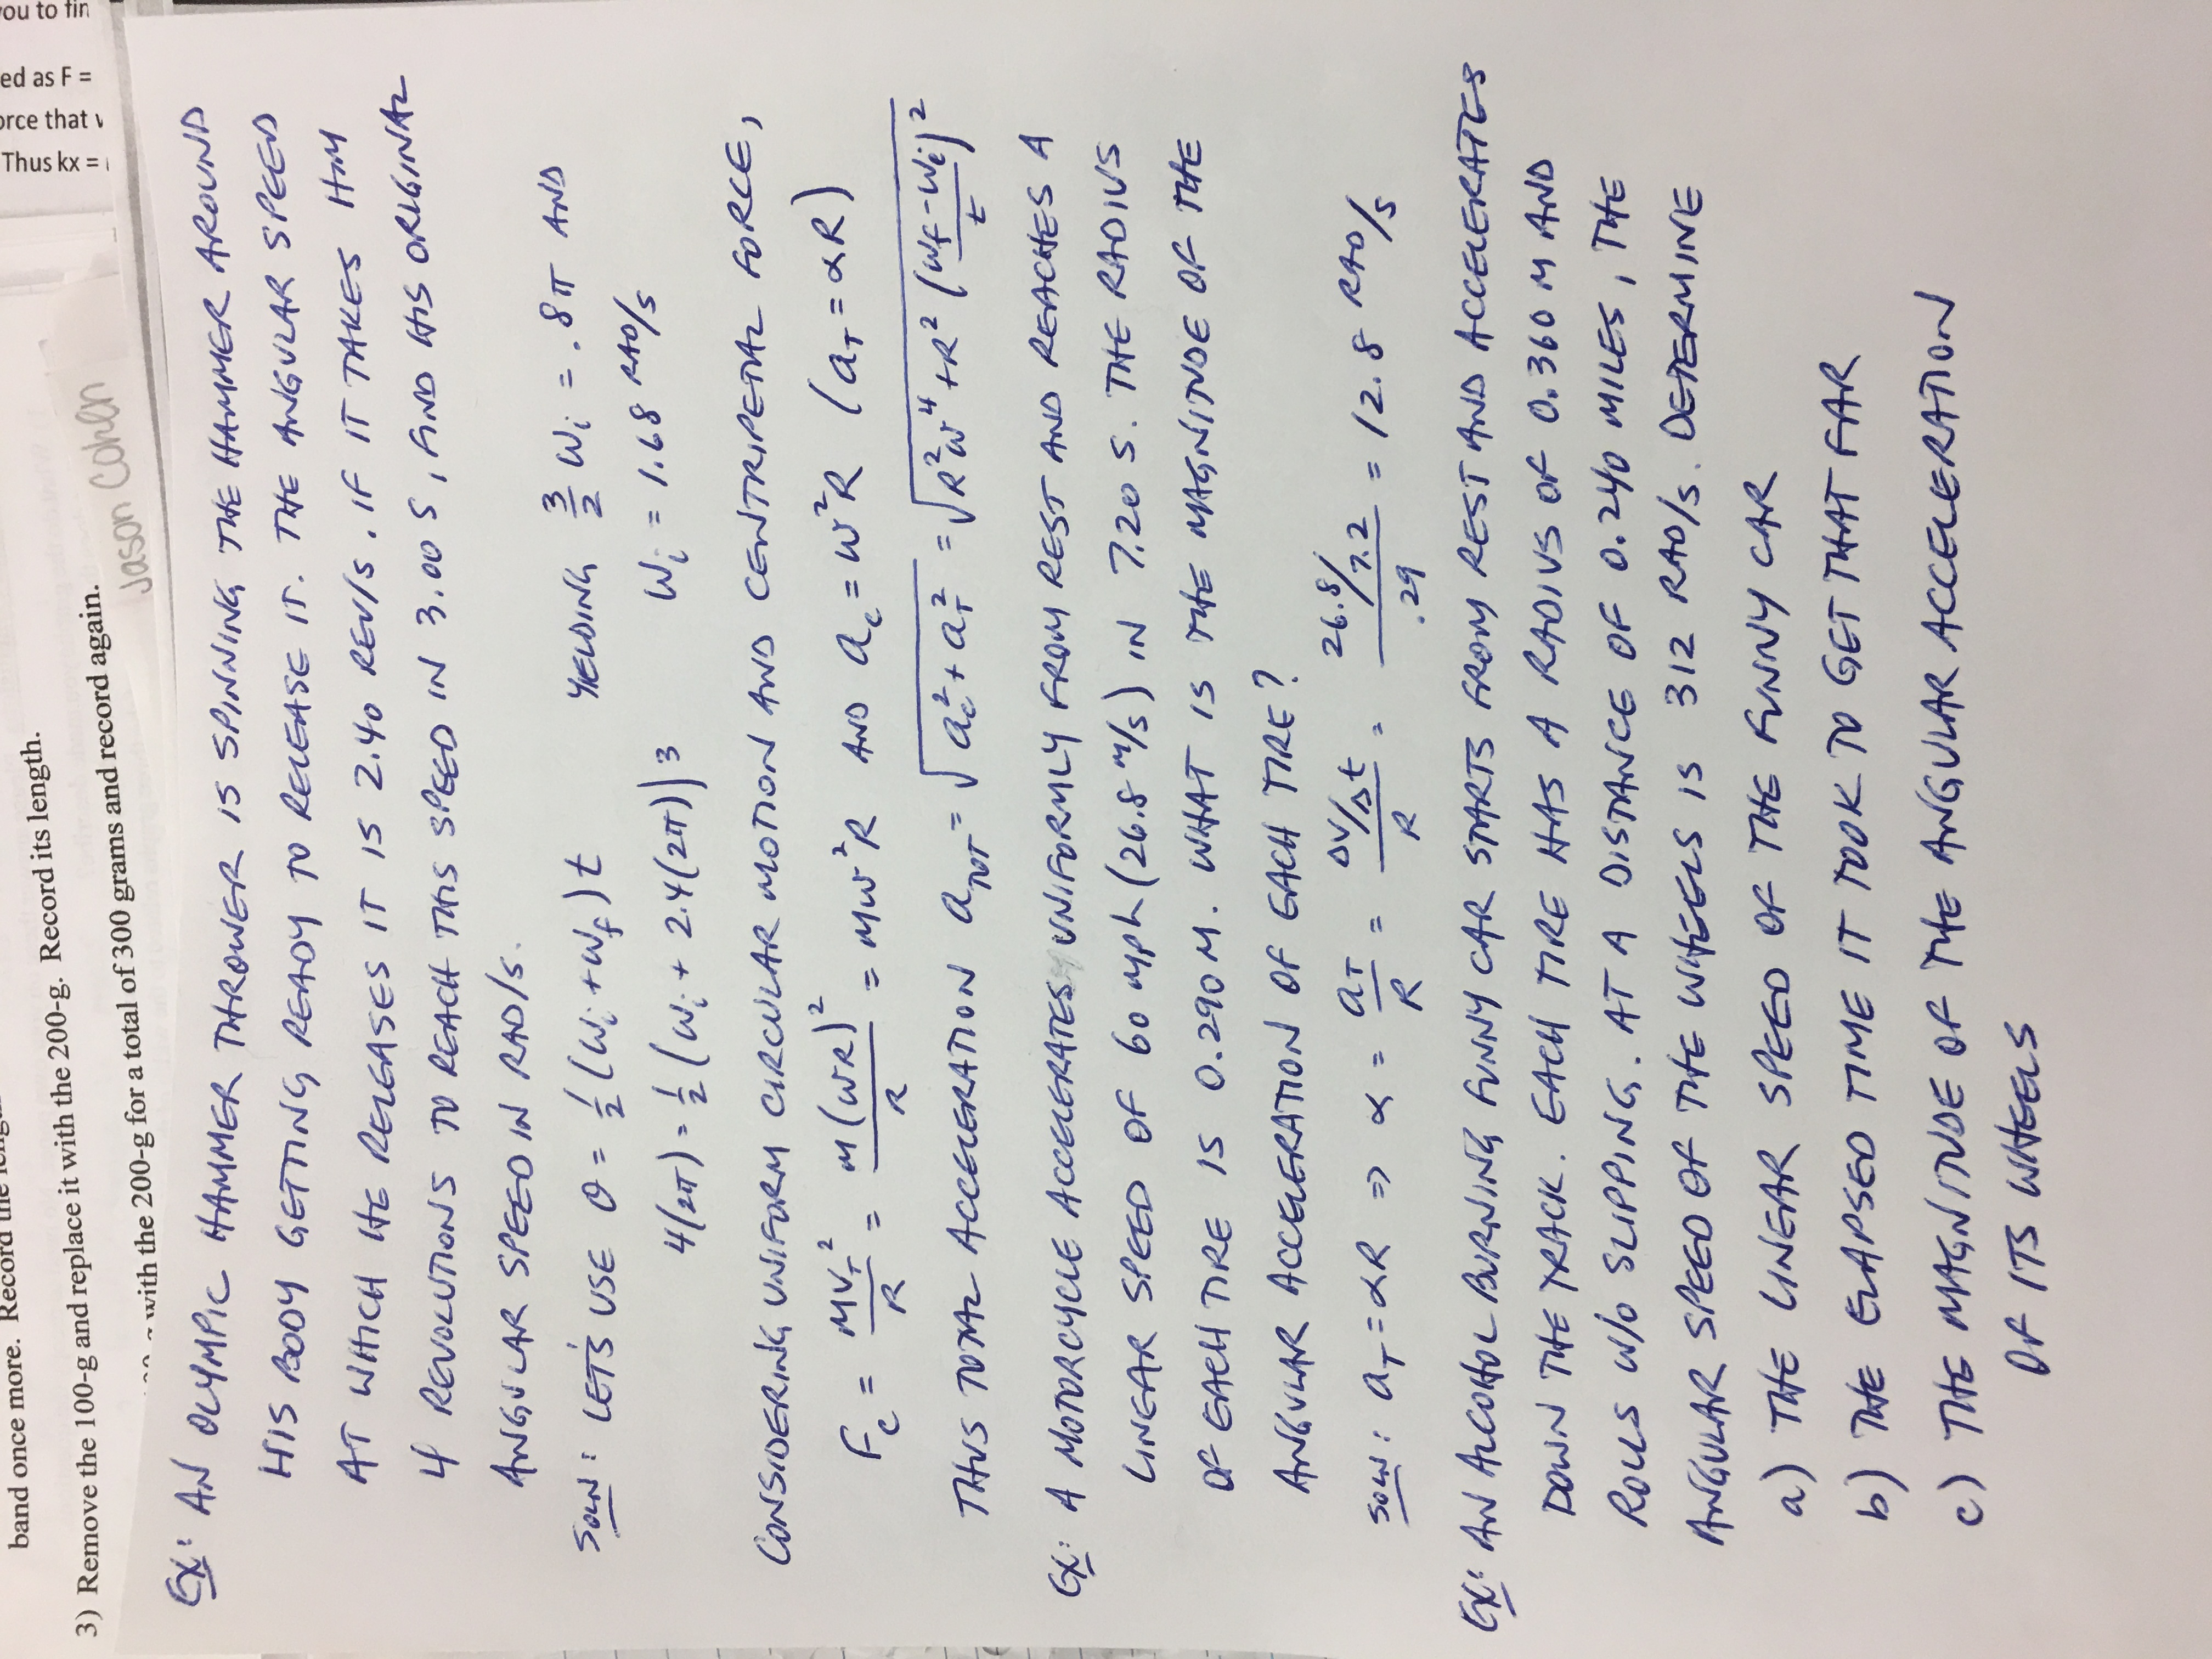 you to fin
ed as F =
orce that
Thus kx =
band once more. Record the
3) Remove the 100-g and replace it with the 200-g. Record its length.
with the 200-g for a total of 300 grams and record again.
Jason Cohen
EX: AN OLYMPIC HAMMER THROWER IS SPINNING THE HAMMER AROUND
HIS BODY GETTING READY TO RELEASE IT. THE ANGULAR SPEED
AT WHICH HE RELEASES IT IS 2.40 REV/S. IF IT TAKES HIM
4 REVOLUTIONS TO REACH THIS SPEED IN 3.00 S, FIND HIS ORIGINAL
ANGULAR SPEED IN RAD/S.
SOLN: LET'S USE θ = 1/2 (ωi + ωf) t YIELDING 3/2 ωi = .8π AND
4(2π) = 1/2 (ωi + 2.4(2π)) 3 ωi = 1.68 RAD/S
CONSIDERING UNIFORM CIRCULAR MOTION AND CENTRIPETAL FORCE,
Fc = MVT²/R = M(ωR)²/R = Mω²R AND ac = ω²R (aT = αR)
THUS TOTAL ACCELERATION aTOT = √(ac² + aT²) = √(R²ω⁴ + R² (ωf - ωi/t)²)
EX: A MOTORCYCLE ACCELERATES UNIFORMLY FROM REST AND REACHES A
LINEAR SPEED OF 60 mph (26.8 m/s) IN 7.20 S. THE RADIUS
OF EACH TIRE IS 0.290 M. WHAT IS THE MAGNITUDE OF THE
ANGULAR ACCELERATION OF EACH TIRE?
SOLN: aT = αR ⇒ α = aT/R = ΔV/Δt/R = 26.8/7.2/.29 = 12.8 RAD/S
EX: AN ALCOHOL BURNING FUNNY CAR STARTS FROM REST AND ACCELERATES
DOWN THE TRACK. EACH TIRE HAS A RADIUS OF 0.360 M AND
ROLLS W/O SLIPPING. AT A DISTANCE OF 0.240 MILES, THE
ANGULAR SPEED OF THE WHEELS IS 312 RAD/S. DETERMINE
a) THE LINEAR SPEED OF THE FUNNY CAR
b) THE ELAPSED TIME IT TOOK TO GET THAT FAR
c) THE MAGNITUDE OF THE ANGULAR ACCELERATION
OF ITS WHEELS